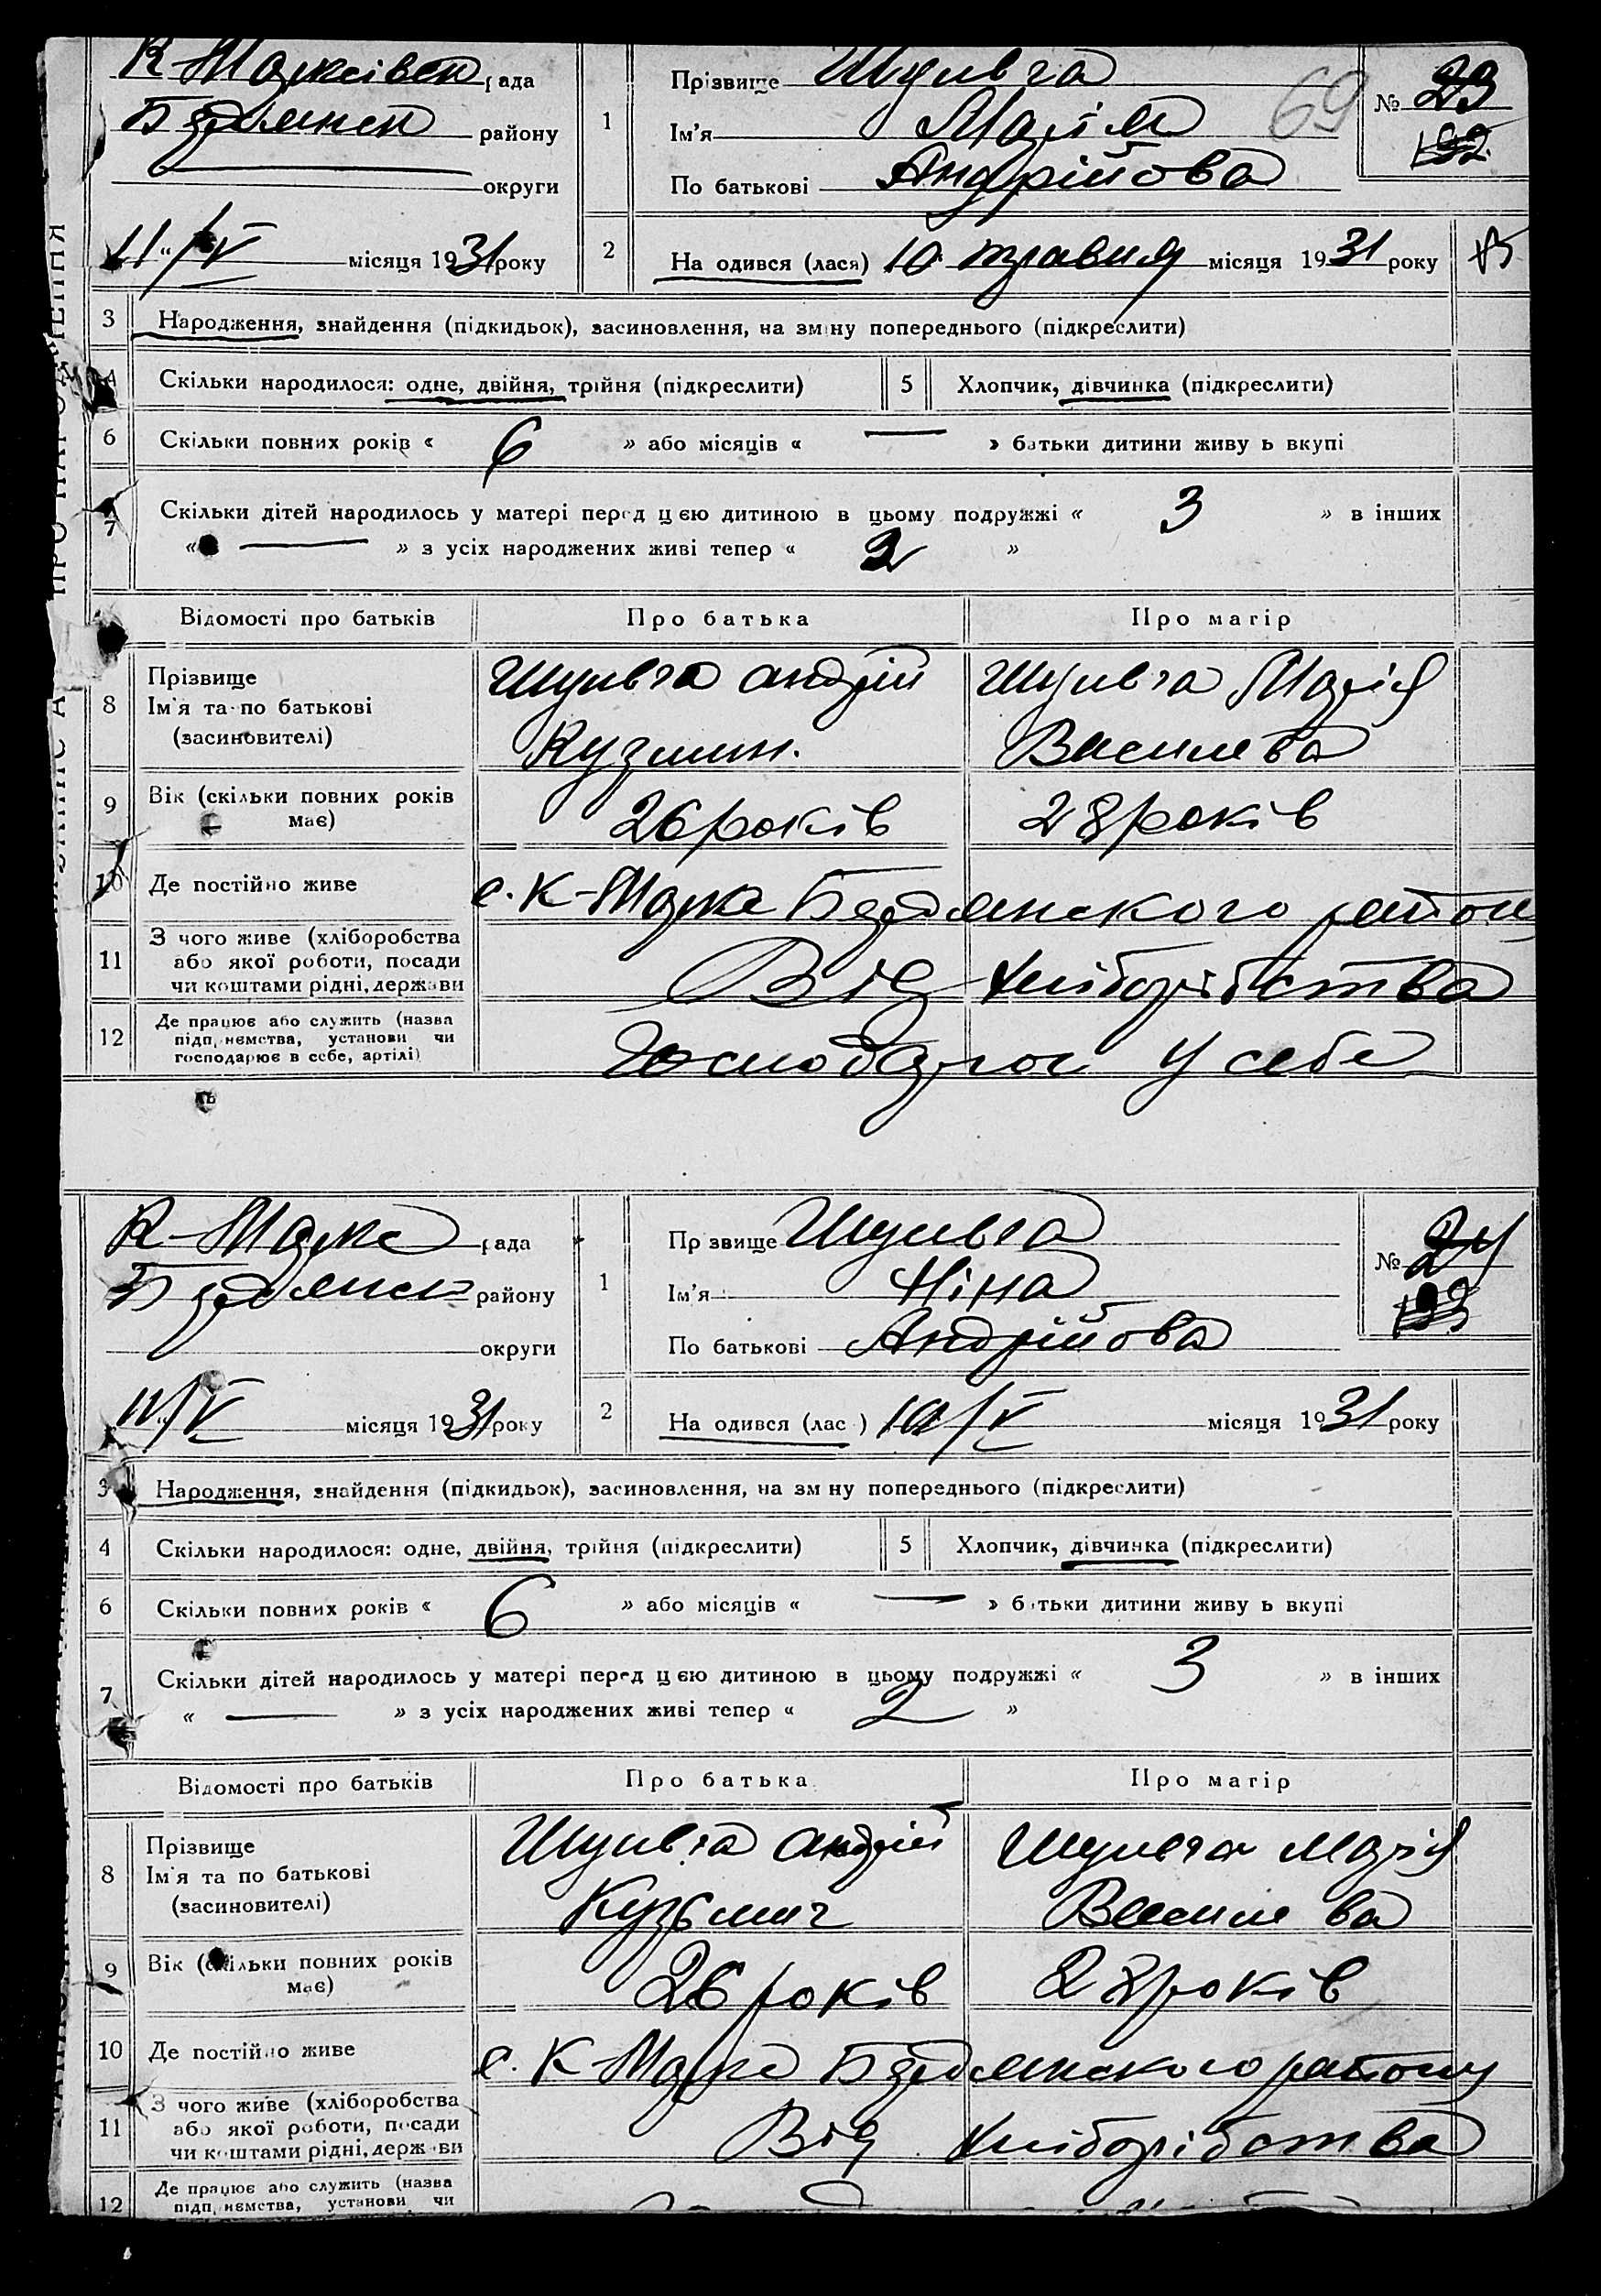 К-Марксівск рада
Бердянск району
округи
11/V місяця 1931 року
1
Прізвище Шульга
Ім'я Марія
По батькові Андрійова
69
№ 23
192
2
На одився (лася) 10 травня місяця 1931 року
3 Народження, знайдення (підкидьок), засиновлення, на зм ну попереднього (підкреслити)
4 Скільки народилося: одне, двійня, трійня (підкреслити)
5 Хлопчик, дівчинка (підкреслити)
6 Скільки повних років « 6 » або місяців « — » батьки дитини живу ь вкупі
7 Скільки дітей народилось у матері перед цєю дитиною в цьому подружжі « 3 » в інших
« — » з усіх народжених живі тепер « 2 »
Відомості про батьків Про батька Про матір
8 Прізвище
Ім'я та по батькові
(засиновителі)
Шульга Андрій
Кузмин.
Шульга Марія
Василева
9 Вік (скільки повних років
має)
26 років 28 років
10 Де постійно живе с. К-Маркс Бердянского району
11 З чого живе (хліборобства
або якої роботи, посади
чи коштами рідні, держави
Від хліборобства
12 Де працює або служить (назва
підп, иємства, установи чи
господарює в себе, артілі)
Господарює у себе
К-Маркс рада
Бердянск району
округи
11/V місяця 1931 року
1
Пр звище Шульга
Ім'я Ніна
По батькові Андрійова
№ 24
193
2
На одився (лас ) 10/V місяця 1931 року
3 Народження, знайдення (підкидьок), засиновлення, на зм ну попереднього (підкреслити)
4 Скільки народилося: одне, двійня, трійня (підкреслити)
5 Хлопчик, дівчинка (підкреслити)
6 Скільки повних років « 6 » або місяців « — » б тьки дитини живу ь вкупі
7 Скільки дітей народилось у матері перед цєю дитиною в цьому подружжі « 3 » в інших
« — » з усіх народжених живі тепер « 2 »
Відомості про батьків Про батька Про матір
8 Прізвище
Ім'я та по батькові
(засиновителі)
Шульга Андрій
Кузьмич
Шульга Марія
Василева
9 Вік (скільки повних років
має)
26 років 28 років
10 Де постійно живе с. К-Маркс Бердянского району
11 З чого живе (хліборобства
або якої роботи, посади
чи коштами рідні, держ ви
Від хліборобства
12 Де працює або служить (назва
підп, иємства, установи чи